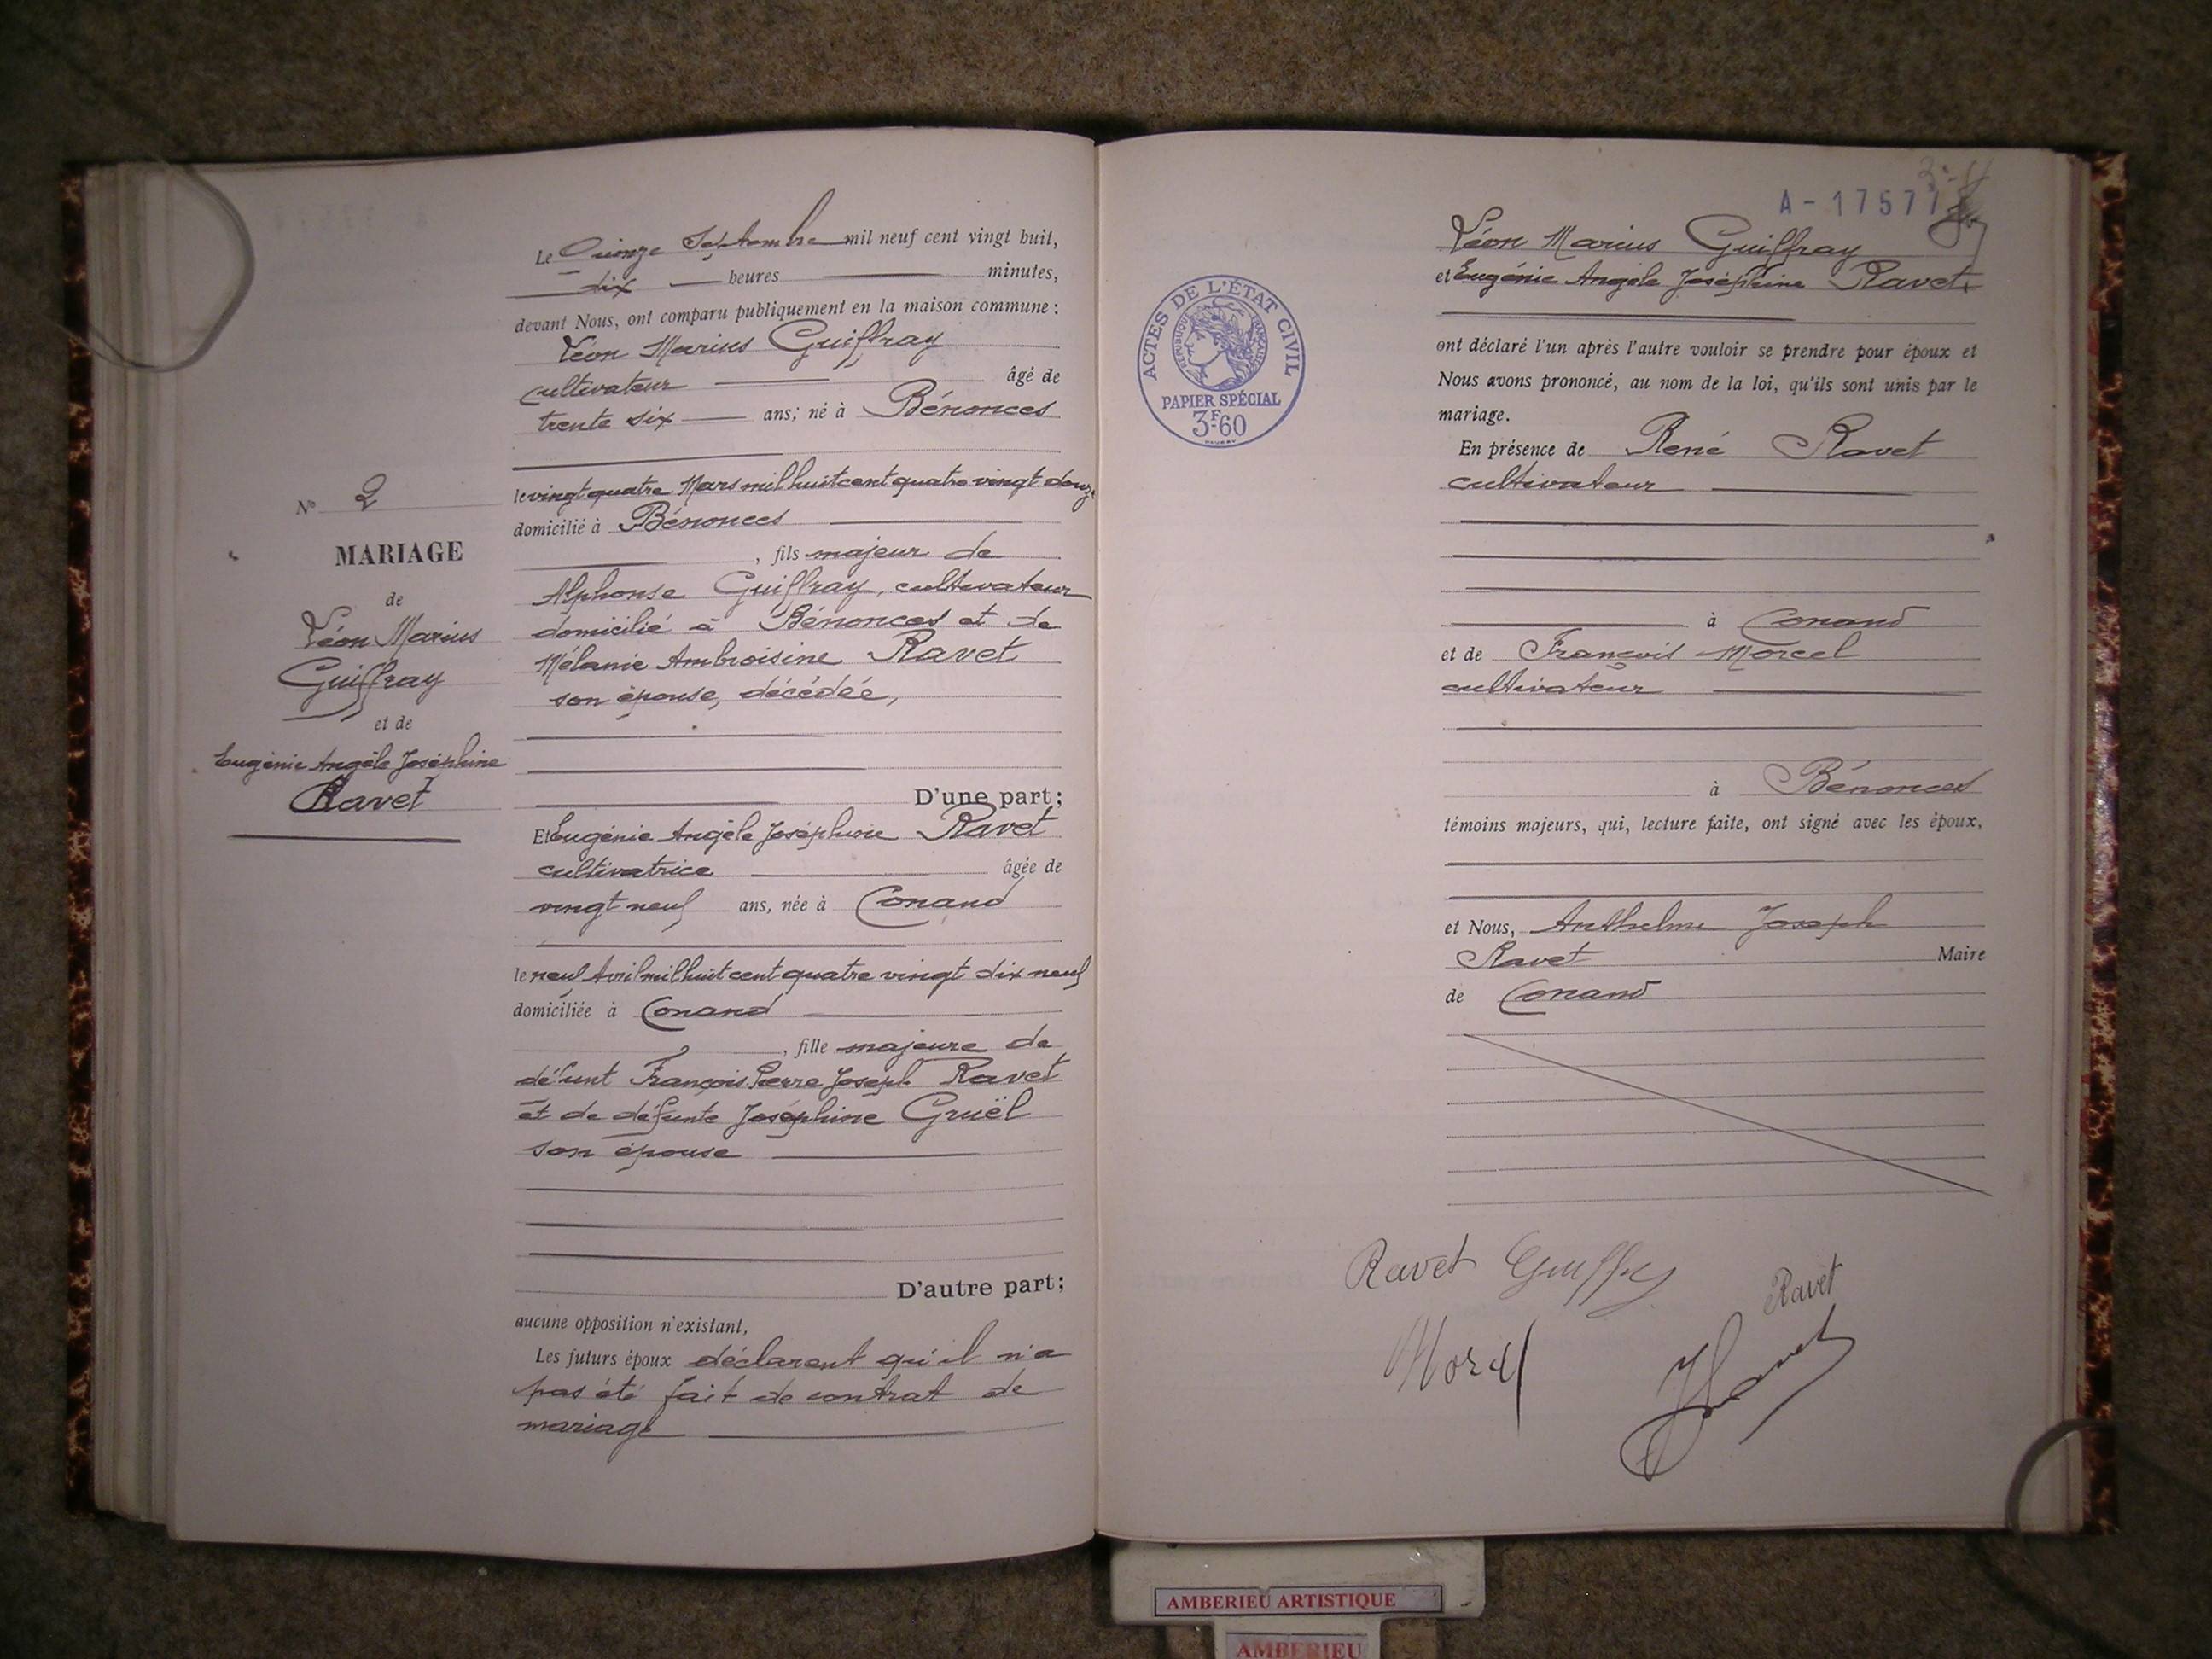 Le Quinze Septembre mil neuf cent vingt huit,
dix heures minutes,
devant Nous, ont comparu publiquement en la maison commune :
Léon Marius Guiffray
cultivateur âgé de
trente six ans; né à Bénonces
le vingt quatre Mars mil huit cent quatre vingt douze
domicilié à Bénonces
, fils majeur de
Alphonse Guiffray, cultivateur
domicilié à Bénonces et de
Mélanie Ambroisine Ravet
son épouse, décédée,
D'une part;
Et Eugénie Angèle Joséphine Ravet
cultivatrice âgée de
vingt neuf ans, née à Conand
le neuf Avril mil huit cent quatre vingt dix neuf
domiciliée à Conand
, fille majeure de
défunt François Pierre Joseph Ravet
et de défunte Joséphine Gruël
son épouse
D'autre part;
aucune opposition n'existant,
Les futurs époux déclarent qu'il n'a
pas été fait de contrat de
mariage
N° 2
MARIAGE
de
Léon Marius
Guiffray
et de
Eugénie Angèle Joséphine
Ravet
A - 17577
ACTES DE L'ÉTAT CIVIL
RÉPUBLIQUE FRANÇAISE
PAPIER SPÉCIAL
3F60
Léon Marius Guiffray
et Eugénie Angèle Joséphine Ravet,
ont déclaré l'un après l'autre vouloir se prendre pour époux et
Nous avons prononcé, au nom de la loi, qu'ils sont unis par le
mariage.
En présence de René Ravet
cultivateur
à Conand
et de François Morcel
cultivateur
à Bénonces
témoins majeurs, qui, lecture faite, ont signé avec les époux,
et Nous, Anthelme Joseph
Ravet Maire
de Conand
Ravet Guiffray
Ravet
Morcel
AMBERIEU ARTISTIQUE
AMBERIEU